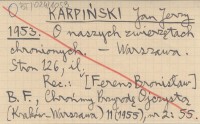 KARPIŃSKI Jan Jerzy
1953. O naszych zwierzętach
chronionych. – Warszawa.
Stron 126, il.
Rec.: [Ferens Bronisław]
B. F., Chrońmy Przyrodę Ojczystą
(Kraków-Warszawa) 11 (1955), nr 2: 55.